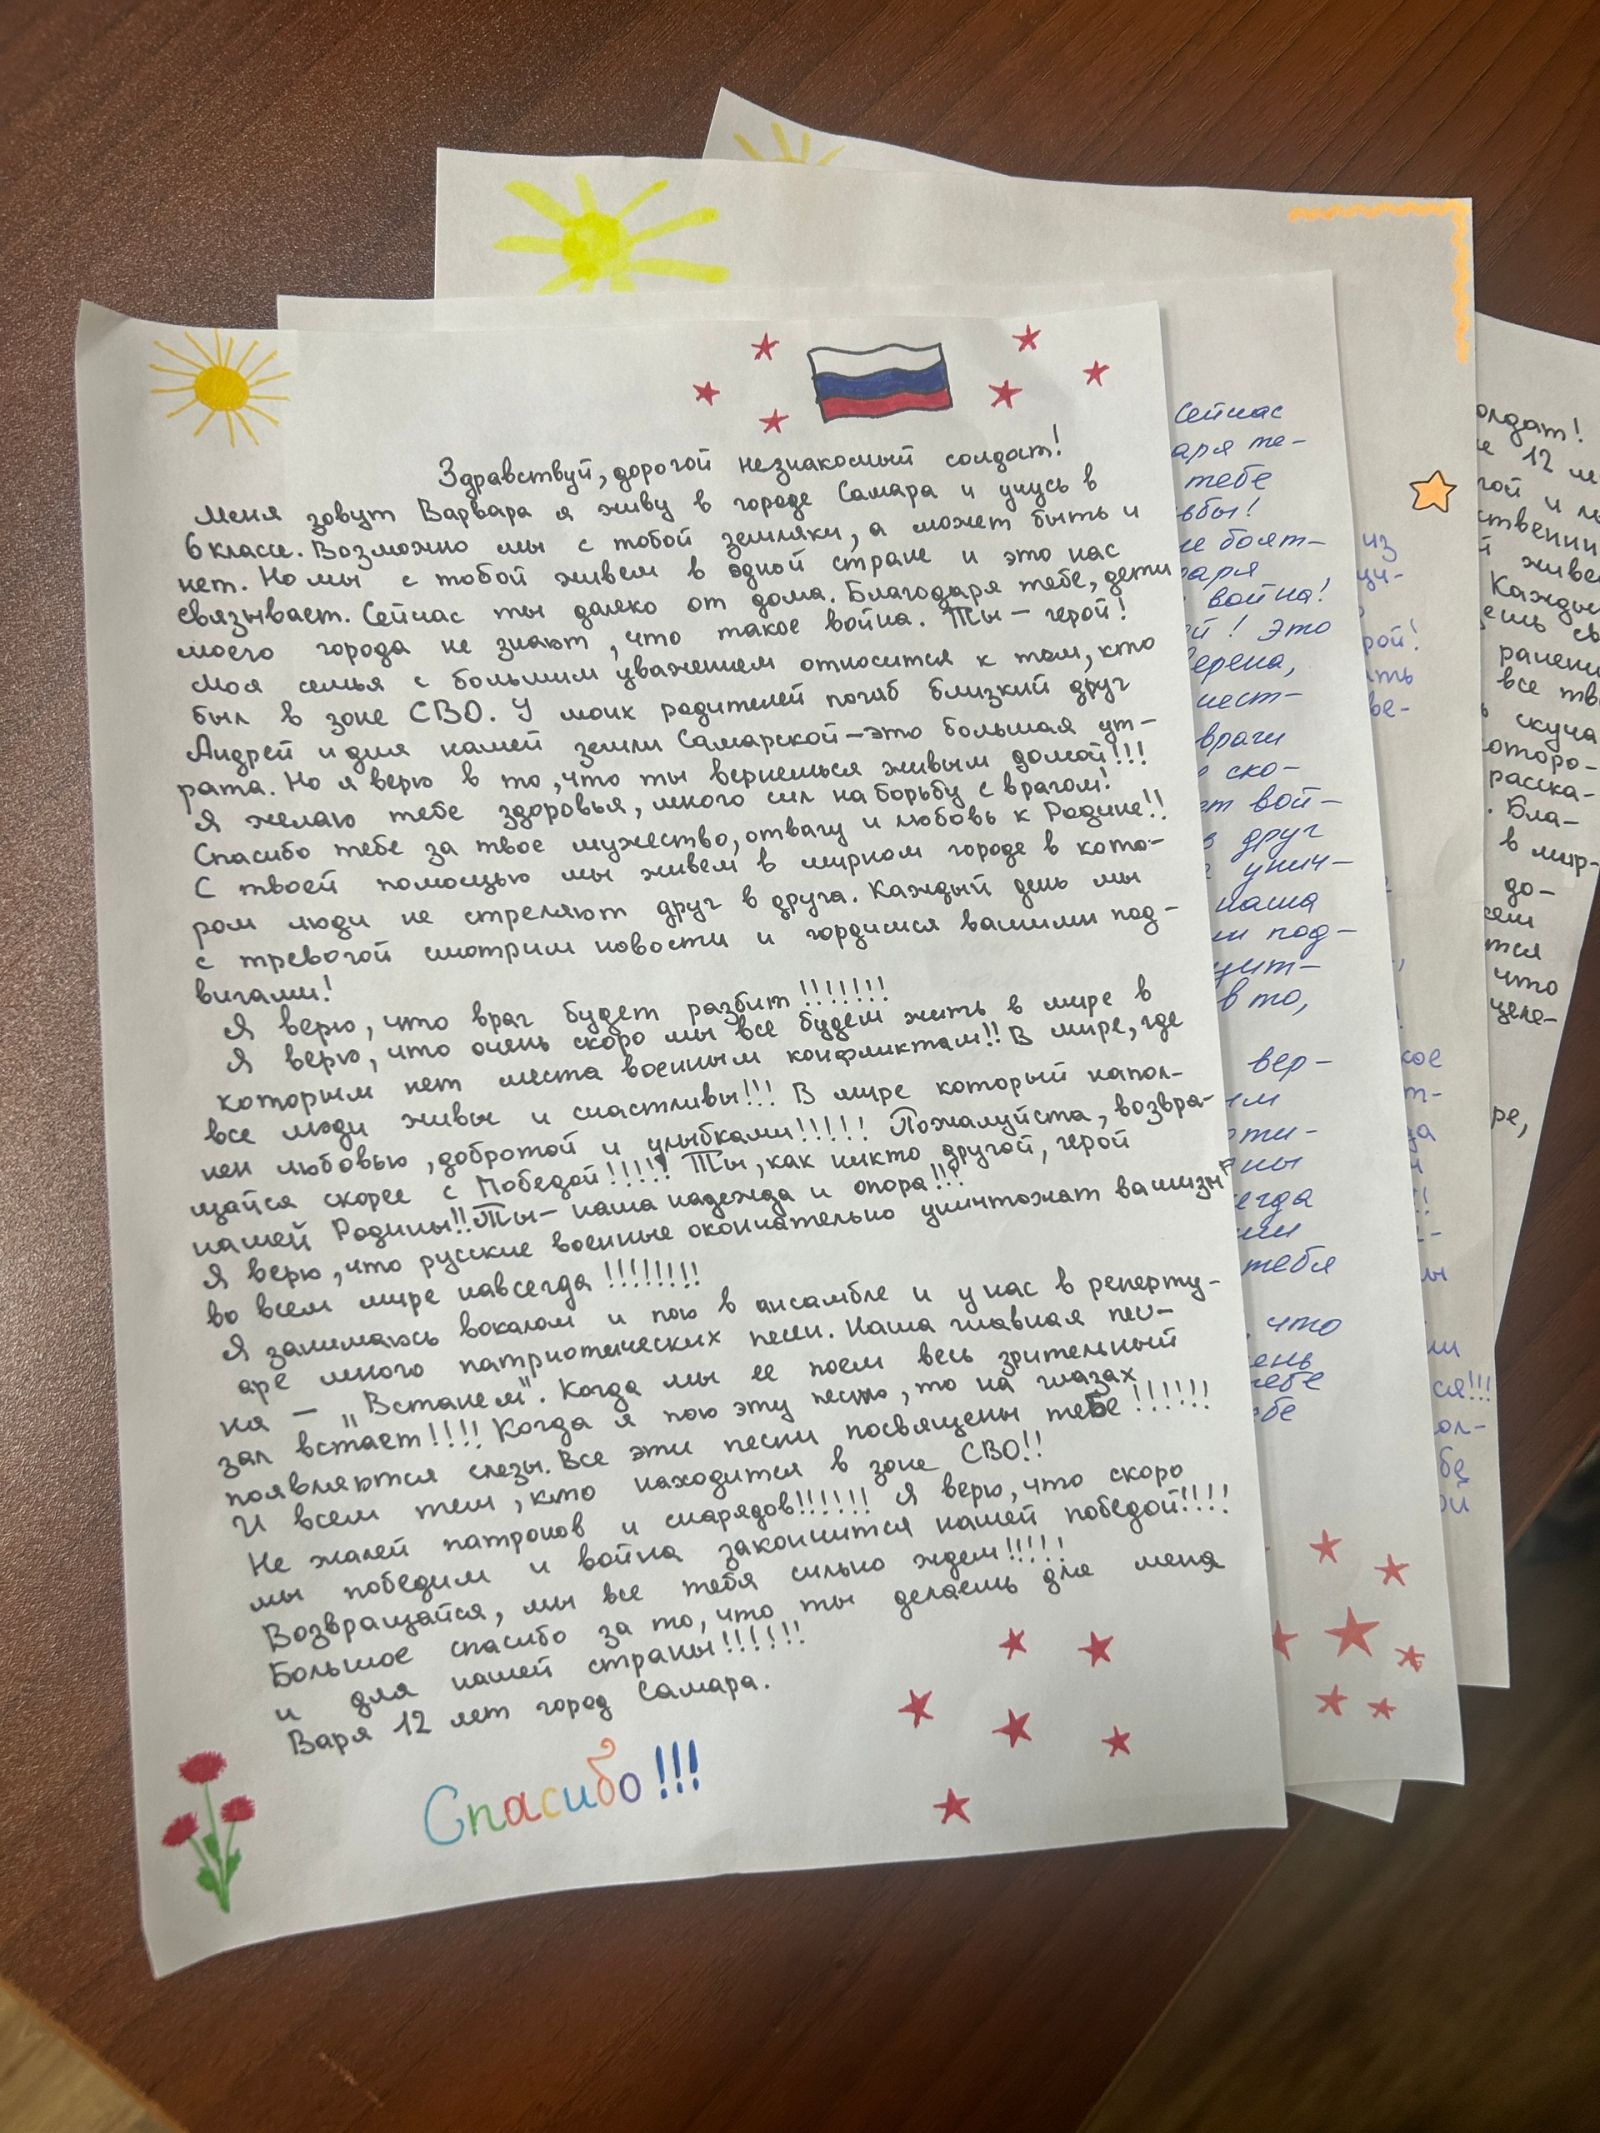 Здравствуй, дорогой незнакомый солдат!
Меня зовут Варвара я живу в городе Самара и учусь в
6 классе. Возможно мы с тобой земляки, а может быть и
нет. Но мы с тобой живем в одной стране и это нас
связывает. Сейчас ты далеко от дома. Благодаря тебе, дети
моего города не знают, что такое война. Ты – герой!
Моя семья с большим уважением относится к тем, кто
был в зоне СВО. У моих родителей погиб близкий друг
Андрей и для нашей земли Самарской – это большая ут-
рата. Но я верю в то, что ты вернешься живым домой!!!
Я желаю тебе здоровья, много сил на борьбу с врагом!
Спасибо тебе за твое мужество, отвагу и любовь к Родине!!
С твоей помощью мы живем в мирном городе в кото-
ром люди не стреляют друг в друга. Каждый день мы
с тревогой смотрим новости и гордимся вашими под-
вигами!
Я верю, что враг будет разбит!!!!!!!
Я верю, что очень скоро мы все будем жить в мире в
которым нет места военным конфликтам!! В мире, где
все люди живы и счастливы!!! В мире который напол-
нен любовью, добротой и улыбками!!!!! Пожалуйста, возвра-
щайся скорее с Победой!!!!! Ты, как никто другой, герой
нашей Родины!! Ты – наша надежда и опора!!!
Я верю, что русские военные окончательно уничтожат
во всем мире навсегда!!!!!!!!
Я занимаюсь вокалом и пою в ансамбле и у нас в реперту-
аре много патриотических песен. Наша главная пес-
ня – „Встанем". Когда мы ее поем весь зрительный
зал встает!!!! Когда я пою эту песню, то на глазах
появляются слезы. Все эти песни посвящены тебе!!!!!!
И всем тем, кто находится в зоне СВО!!
Не жалей патронов и снарядов!!!!!! Я верю, что скоро
мы победим и война закончится нашей победой!!!!
Возвращайся, мы все тебя сильно ждем!!!!!
Большое спасибо за то, что ты делаешь для меня
и для нашей страны!!!!!!
Варя 12 лет город Самара.
Спасибо!!!
Сейчас
аря те-
тебе
ьбы!
не боят-
даря
война!
ой! Это
верена,
чест-
враги
ско-
ет вой-
в друг
унич-
наша
под-
в то,
вер-
тебя
что
тебе
из
рой!
ать
солдат!
12
живе
Кажды
ранени
все тво
скуча
оторо-
расска-
Бла-
в мир-
до-
тся
что
целе-
ре,